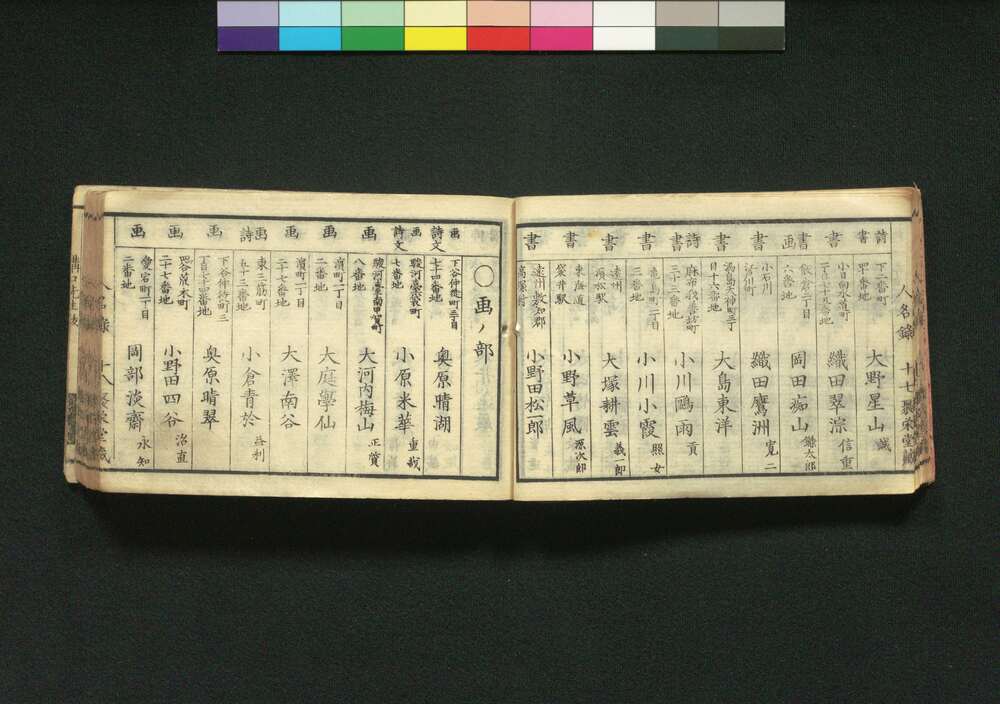 詩書
下二番町四十二番地
大野星山 誠
書
小日向水道町二百七十九番地
織田翠淙 信重
書画
飯倉二丁目六番地
岡田痴山 鎌太郎
書
小石川
織田鷹洲 寛二
書
湯島天神町三丁目十六番地
大島東洋
詩書
三十三番地
小川鷗雨 貢
書
亀島町二丁目三番地
小川小霞 照女
書
遠州濱松駅
大塚耕雲 義一郎
書
東海道袋井駅
小野草風 源次郎
書
遠州敷知郡高塚村
小野田松一郎
人名錄 十七 聚栄堂蔵
〇画ノ部
画詩文
下谷仲徒町三丁目七十四番地
奥原晴湖
画詩文
駿河臺袋町七番地
小原米華 重哉
画
駿河臺南甲賀町八番地
大河内梅山 正質
画
濵町二丁目二番地
大庭學仙
画
濵町二丁目二十七番地
大澤南谷
画詩
東三筋町五十三番地
小倉青於 益利
画
下谷仲徒町三丁目七十三番地
奥原晴翠
画
四谷傳馬町二十七番地
小野田四谷 治直
画
愛宕町一丁目二番地
岡部淡齋 永知
人名錄 十八 聚栄堂蔵